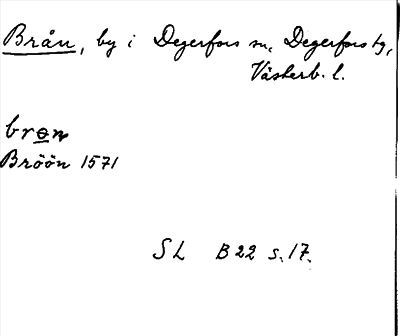 Brån, by i Degerfors sn, Degerfors tg,
Västerb. l.
bron
Bröön 1571
SL B22 s. 17.